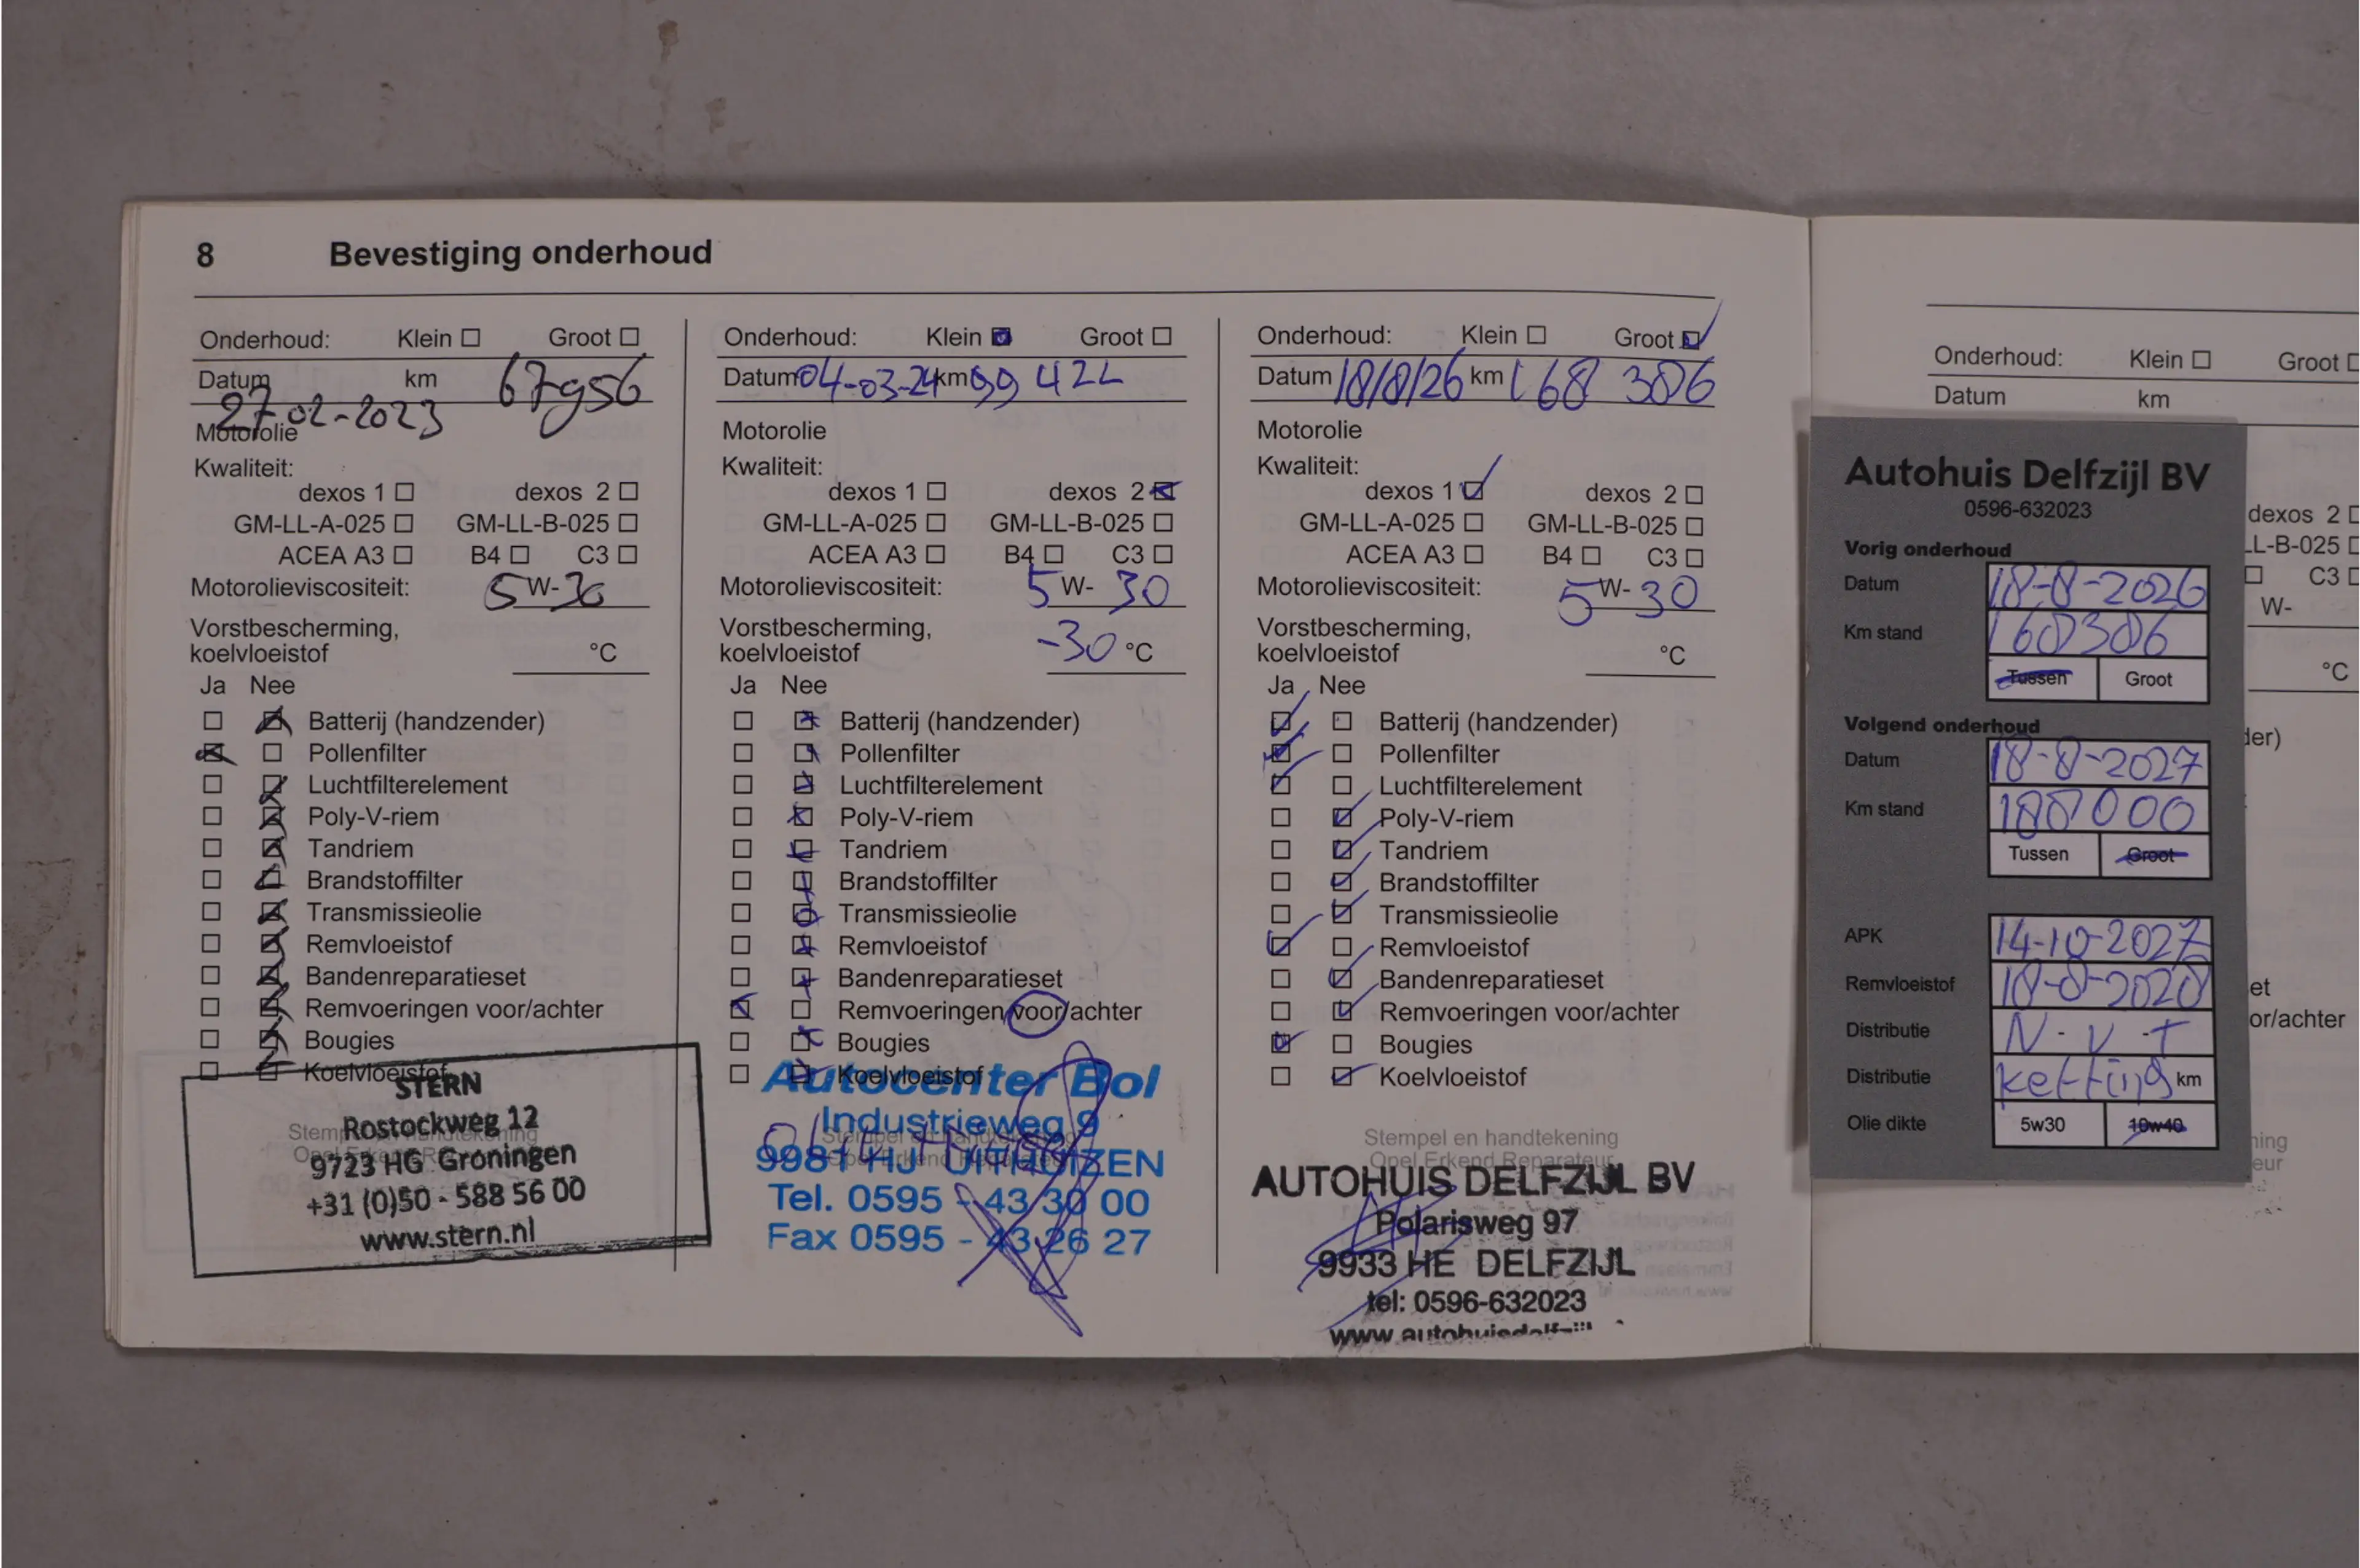 8 Bevestiging onderhoud
Onderhoud: Klein Groot
Datum km 67956
27-02-2023
Motorolie
Kwaliteit:
dexos 1 dexos 2
GM-LL-A-025 GM-LL-B-025
ACEA A3 B4 C3
Motorolieviscositeit: 5 W- 30
Vorstbescherming,
koelvloeistof °C
Ja Nee
Batterij (handzender)
Pollenfilter
Luchtfilterelement
Poly-V-riem
Tandriem
Brandstoffilter
Transmissieolie
Remvloeistof
Bandenreparatieset
Remvoeringen voor/achter
Bougies
Koelvloeistof
STERN
Rostockweg 12
9723 HG Groningen
+31 (0)50 - 588 56 00
www.stern.nl
Onderhoud: Klein Groot
Datum 04-03-24 km 99 422
Motorolie
Kwaliteit:
dexos 1 dexos 2
GM-LL-A-025 GM-LL-B-025
ACEA A3 B4 C3
Motorolieviscositeit: 5 W- 30
Vorstbescherming,
koelvloeistof -30 °C
Ja Nee
Batterij (handzender)
Pollenfilter
Luchtfilterelement
Poly-V-riem
Tandriem
Brandstoffilter
Transmissieolie
Remvloeistof
Bandenreparatieset
Remvoeringen voor/achter
Bougies
Koelvloeistof
Autocenter Bol
Industrieweg 9
9981 HJ UITHUIZEN
Tel. 0595 - 43 30 00
Fax 0595 - 43 26 27
Onderhoud: Klein Groot
Datum 18/8/26 km 168 386
Motorolie
Kwaliteit:
dexos 1 dexos 2
GM-LL-A-025 GM-LL-B-025
ACEA A3 B4 C3
Motorolieviscositeit: 5 W- 30
Vorstbescherming,
koelvloeistof °C
Ja Nee
Batterij (handzender)
Pollenfilter
Luchtfilterelement
Poly-V-riem
Tandriem
Brandstoffilter
Transmissieolie
Remvloeistof
Bandenreparatieset
Remvoeringen voor/achter
Bougies
Koelvloeistof
Stempel en handtekening
Opel Erkend Reparateur
AUTOHUIS DELFZIJL BV
Polarisweg 97
9933 HE DELFZIJL
tel: 0596-632023
Onderhoud: Klein Groot
Datum km
dexos 2
LL-B-025
C3
W-
°C
der)
et
or/achter
ning
eur
Autohuis Delfzijl BV
0596-632023
Vorig onderhoud
Datum 18-8-2026
Km stand 168386
Tussen Groot
Volgend onderhoud
Datum 18-8-2027
Km stand 188000
Tussen Groot
APK 14-10-2027
Remvloeistof 18-8-2028
Distributie N-V-T
Distributie ketting km
Olie dikte 5w30 10w40